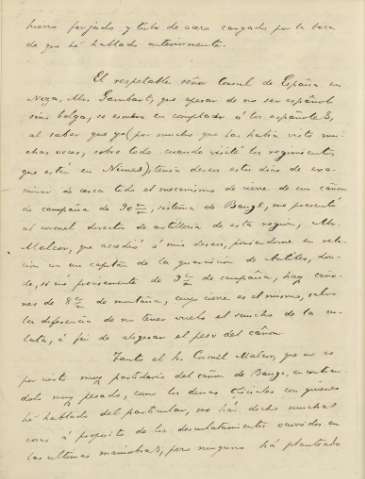 hierro forjado y tubo de acero cargado por la boca
de que hé hablado anteriormente.
El respetable señor Consul de España en
Niza, Mr. Gambart, que apesar de no ser español
sino belga, se esmera en complacer á los españoles,
al saber que yo (por mucho que las había visto mu-
chas veces, sobre todo cuando visité los regimientos
que están en Nimes), tenía deseos estos dias de exa-
minar de cerca todo el mecanismo de cierre de un cañon
de campaña de 90 m/m, sistema de Bange, me presentó
al coronel director de artillería de esta region, Mr.
Mateur, que accedió á mis deseos, poniendome en rela-
cion con un capitan de la guarnicion de Antibes, don-
de, si nó precisamente de 9 c/m de campaña, hay caño-
nes de 8 c/m de montaña, cuyo cierre es el mismo, salvo
la diferencia de no tener vuelo el mucho de la cu-
lata, á fin de aligerar el peso del cañon.
Tanto el Sr. Coronel Mateur, que no es
por cierto muy partidario del cañon de Bange, encontran-
dolo muy pesado, como los demas oficiales con quienes
hé hablado del particular, me hán dicho muchas
cosas á proposito de los desculatamientos ocurridos en
las ultimas maniobras, pero ninguno há planteado